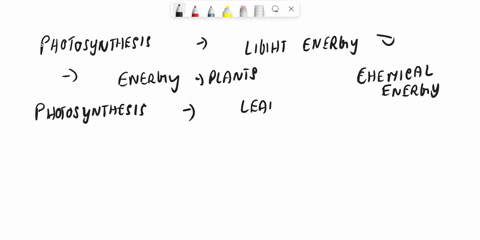 PHOTOSYNTHESIS → LIGIHT ENERGY →
→ ENERGY → PLANTS CHEMICAL
ENERGY
PHOTOSYNTHESIS → LEAI